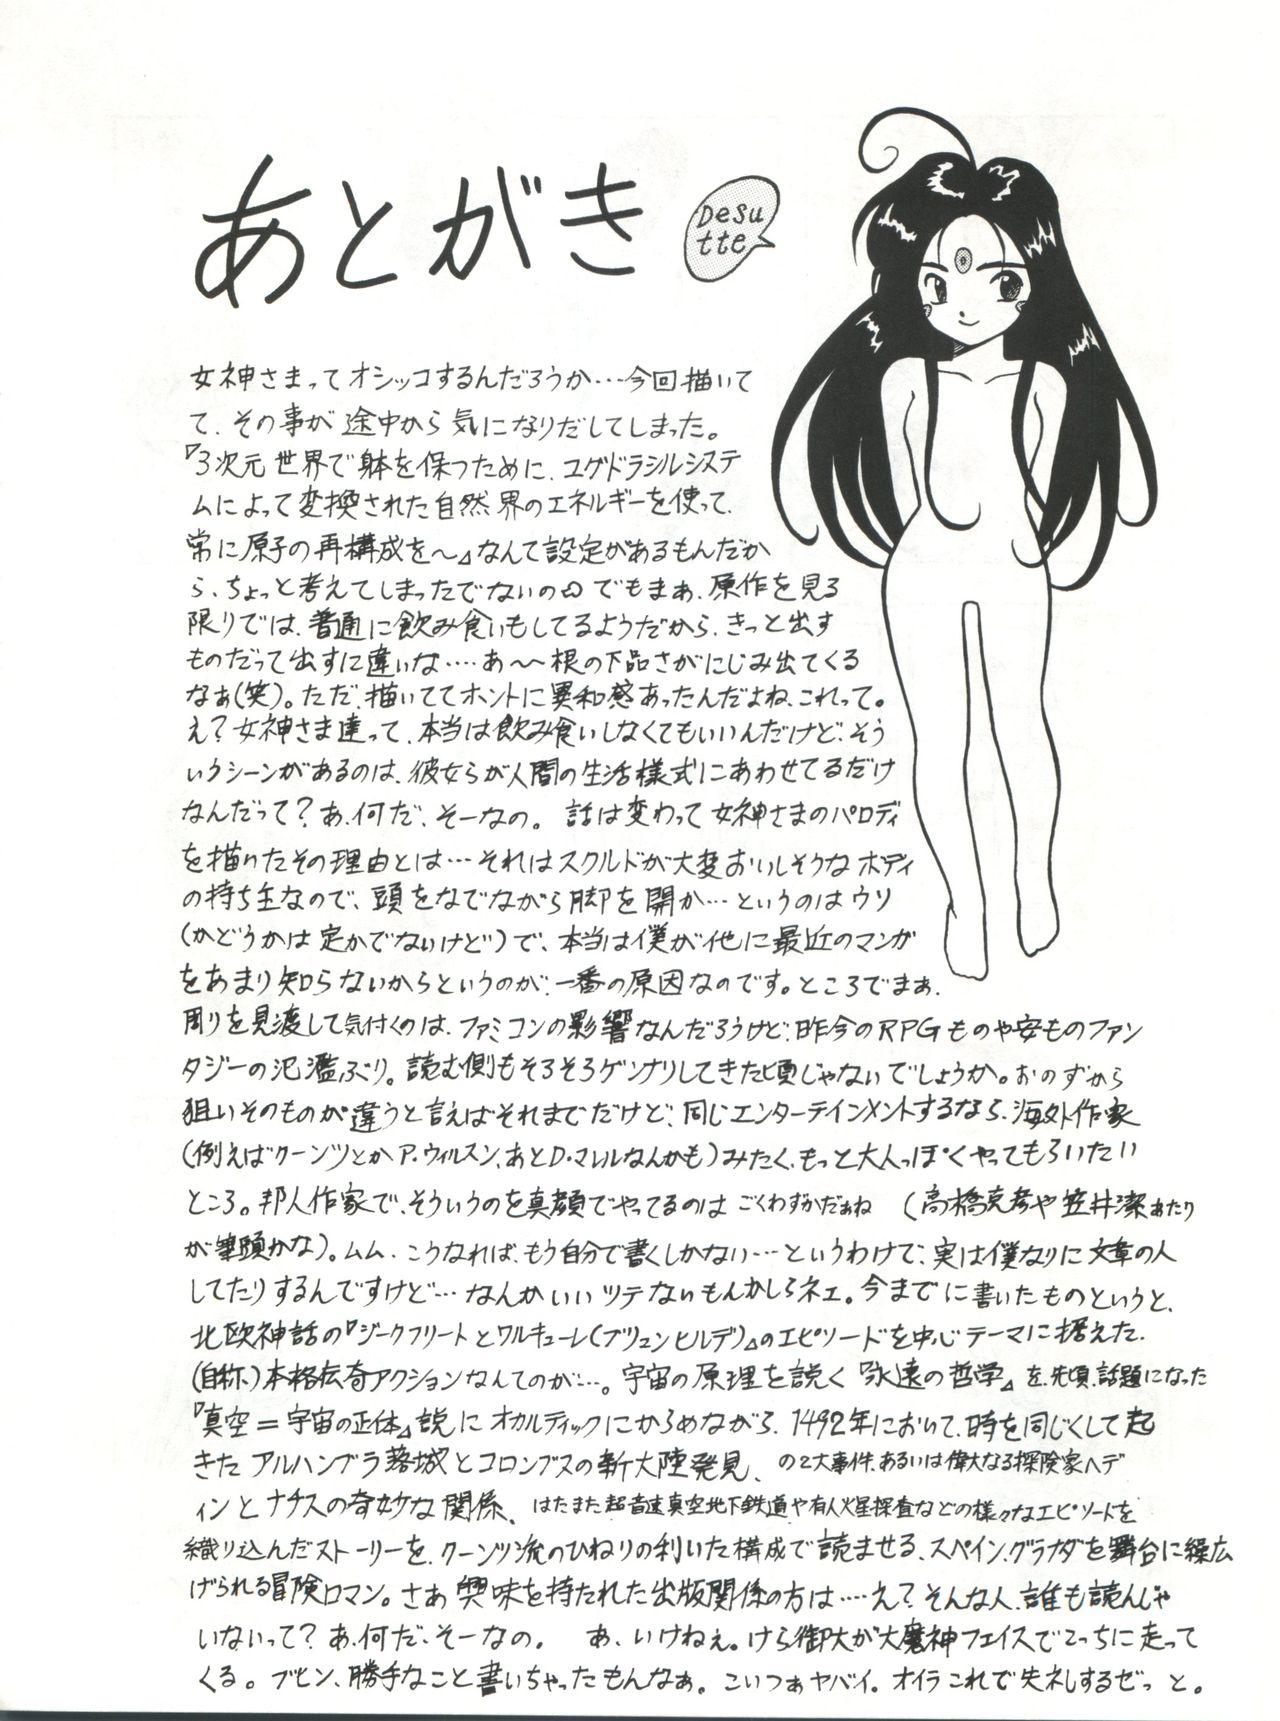 あとがき
Desu
tte
女神さまってオシッコするんだろうか…今回描いて
て、その事が途中から気になりだしてしまった。
『3次元世界で躰を保つために、ユグドラシルシステ
ムによって変換された自然界のエネルギーを使って、
常に原子の再構成を〜』なんて設定があるもんだか
ら、ちょっと考えてしまったでないの でもまぁ、原作を見る
限りでは、普通に飲み食いもしてるようだから、きっと出す
ものだって出すに違いな‥‥あ〜〜根の下品さがにじみ出てくる
なぁ(笑)。ただ、描いててホントに異和感あったんだよね、これって。
え?女神さま達って、本当は飲み食いしなくてもいいんだけど、そう
いうシーンがあるのは、彼女らが人間の生活様式にあわせてるだけ
なんだって?あ、何だ、そーなの。 話は変わって女神さまのパロディ
を描いたその理由とは…それはスクルドが大変おいしそうなボディ
の持ち主なので、頭をなでながら脚を開か…というのはウソ
(かどうかは定かでないけど)で、本当は僕が他に最近のマンガ
をあまり知らないからというのが、一番の原因なのです。ところでまぁ、
周りを見渡して気付くのは、ファミコンの影響なんだろうけど、昨今のRPGものや安ものファン
タジーの氾濫ぶり。読む側もそろそろゲンナリしてきた頃じゃないでしょうか。おのずから
狙いそのものが違うと言えばそれまでだけど、同じエンターテインメントするなら、海外作家
(例えばクーンツとかA・ウィルスン、あとD・マレルなんかも)みたく、もっと大人っぽくやってもらいたい
ところ。邦人作家で、そういうのを真顔でやってるのはごくわずかだぁね (高橋克彦や笠井潔あたり
が筆頭かな)。ムム、こうなれば、もう自分で書くしかない…というわけで、実は僕なりに文章の人
してたりするんですけど…なんかいいツテないもんかしらネェ。今までに書いたものというと、
北欧神話の『ジークフリートとワルキューレ(ブリュンヒルデ)』のエピソードを中心テーマに据えた、
(自称)本格伝奇アクションなんてのが…。宇宙の原理を説く『永遠の哲学』を、先頃話題になった
『真空=宇宙の正体』説にオカルティックにからめながら、1492年において、時を同じくして起
きたアルハンブラ落城とコロンブスの新大陸発見、の2大事件、あるいは偉大なる探険家ヘデ
ィンとナチスの奇妙な関係、はたまた超音速真空地下鉄道や有人火星探査などの様々なエピソードを
織り込んだストーリーを、クーンツ流のひねりの利いた構成で読ませる、スペイン、グラナダを舞台に繰広
げられる冒険ロマン。さあ興味を持たれた出版関係の方は‥‥え?そんな人、誰も読んじゃ
いないって?あ、何だ、そーなの。 あ、いけねぇ。けら御大が大魔神フェイスでこっちに走って
くる。ブヒン、勝手なこと書いちゃったもんなぁ。こいつぁヤバイ。オイラこれで失礼するぜっと。